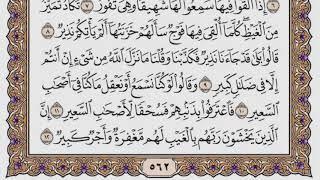 ٦ إِذَآ أُلْقُوا۟ فِيهَا سَمِعُوا۟ لَهَا شَهِيقًا وَهِىَ تَفُورُ ٧ تَكَادُ تَمَيَّزُ
مِنَ ٱلْغَيْظِ كُلَّمَآ أُلْقِىَ فِيهَا فَوْجٌ سَأَلَهُمْ خَزَنَتُهَآ أَلَمْ يَأْتِكُمْ نَذِيرٌ ٨
قَالُوا۟ بَلَىٰ قَدْ جَآءَنَا نَذِيرٌ فَكَذَّبْنَا وَقُلْنَا مَا نَزَّلَ ٱللَّهُ مِن شَىْءٍ إِنْ أَنتُمْ
إِلَّا فِى ضَلَٰلٍ كَبِيرٍ ٩ وَقَالُوا۟ لَوْ كُنَّا نَسْمَعُ أَوْ نَعْقِلُ مَا كُنَّا فِىٓ أَصْحَٰبِ
ٱلسَّعِيرِ ١٠ فَٱعْتَرَفُوا۟ بِذَنۢبِهِمْ فَسُحْقًا لِّأَصْحَٰبِ ٱلسَّعِيرِ ١١
إِنَّ ٱلَّذِينَ يَخْشَوْنَ رَبَّهُم بِٱلْغَيْبِ لَهُم مَّغْفِرَةٌ وَأَجْرٌ كَبِيرٌ ١٢
٥٦٢